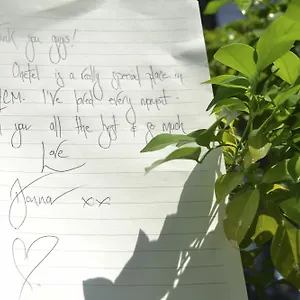 ank you guys!
is a really special place in
CM. I've loved every moment.
you all the best & so much
Love
Hanna xx